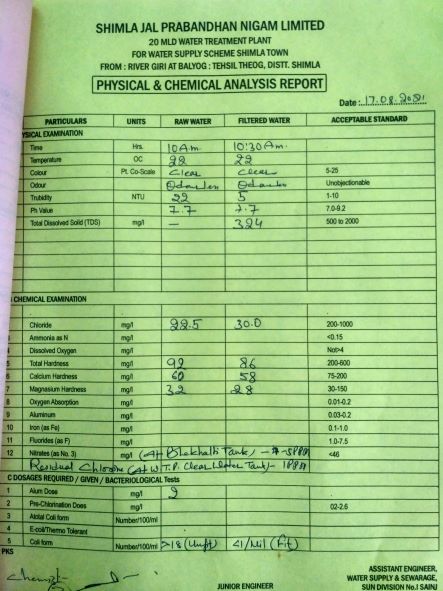 SHIMLA JAL PRABANDHAN NIGAM LIMITED
20 MLD WATER TREATMENT PLANT
FOR WATER SUPPLY SCHEME SHIMLA TOWN
FROM : RIVER GIRI AT BALYOG : TEHSIL THEOG, DISTT. SHIMLA
PHYSICAL & CHEMICAL ANALYSIS REPORT
Date : 17.08.2021
PARTICULARS UNITS RAW WATER FILTERED WATER ACCEPTABLE STANDARD
YSICAL EXAMINATION
Time Hrs. 10Am 10:30Am.
Temperature OC 22 22
Colour Pt. Co-Scale Clear Clear 5-25
Odour Odourless Odourless Unobjectionable
Trubidity NTU 22 5 1-10
Ph Value 7.7 7.7 7.0-9.2
Total Dissolved Solid (TDS) mg/l — 324 500 to 2000
CHEMICAL EXAMINATION
Chloride mg/l 22.5 30.0 200-1000
Ammonia as N mg/l <0.15
4 Dissolved Oxygen mg/l Not>4
5 Total Hardness mg/l 92 86 200-600
6 Calcium Hardness mg/l 60 58 75-200
7 Magnesium Hardness mg/l 32 28 30-150
8 Oxygen Absorption mg/l 0.01-0.2
9 Aluminum mg/l 0.03-0.2
10 Iron (as Fe) mg/l 0.1-1.0
11 Fluorides (as F) mg/l 1.0-7.5
12 Nitrates (as No. 3) mg/l (At Tank) <46
Residual Chlorine (At W.T.P. Clear Water Tank)-
C DOSAGES REQUIRED / GIVEN / BACTERIOLOGICAL Tests
1 Alum Dose mg/l 9
2 Pre-Chlorination Does mg/l 02-2.6
3 Alotal Coli form Number/100/ml
4 E-coli/Thermo Tolerant
5 Coli form Number/100/ml >18 (Unfit) <1/Mil (Fit)
PKS
Chemist
JUNIOR ENGINEER
ASSISTANT ENGINEER,
WATER SUPPLY & SEWARAGE,
SUN DIVISION No.I SAINJ